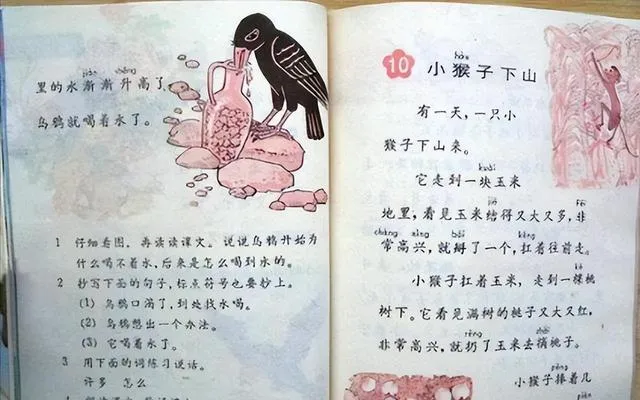 jiàn shēng
里的水渐渐升高了,
乌鸦就喝着水了。
1 仔细看图,再读读课文。说说乌鸦开始为
什么喝不着水,后来是怎么喝到水的。
2 抄写下面的句子,标点符号也要抄上。
(1) 乌鸦口渴了,到处找水喝。
(2) 乌鸦想出一个办法。
(3) 它喝着水了。
3 用下面的词练习说话。
许多 怎么
hóu
10 小猴子下山
有一天,一只小
猴子下山来。
kuài
它走到一块玉米
jiē fēi
地里,看见玉米结得又大又多,非
cháng bāi káng
常高兴,就掰了一个,扛着往前走。
kē
小猴子扛着玉米,走到一棵桃
树下。它看见满树的桃子又大又红,
rēng zhāi
非常高兴,就扔了玉米去摘桃子。
pěng
小猴子捧着几